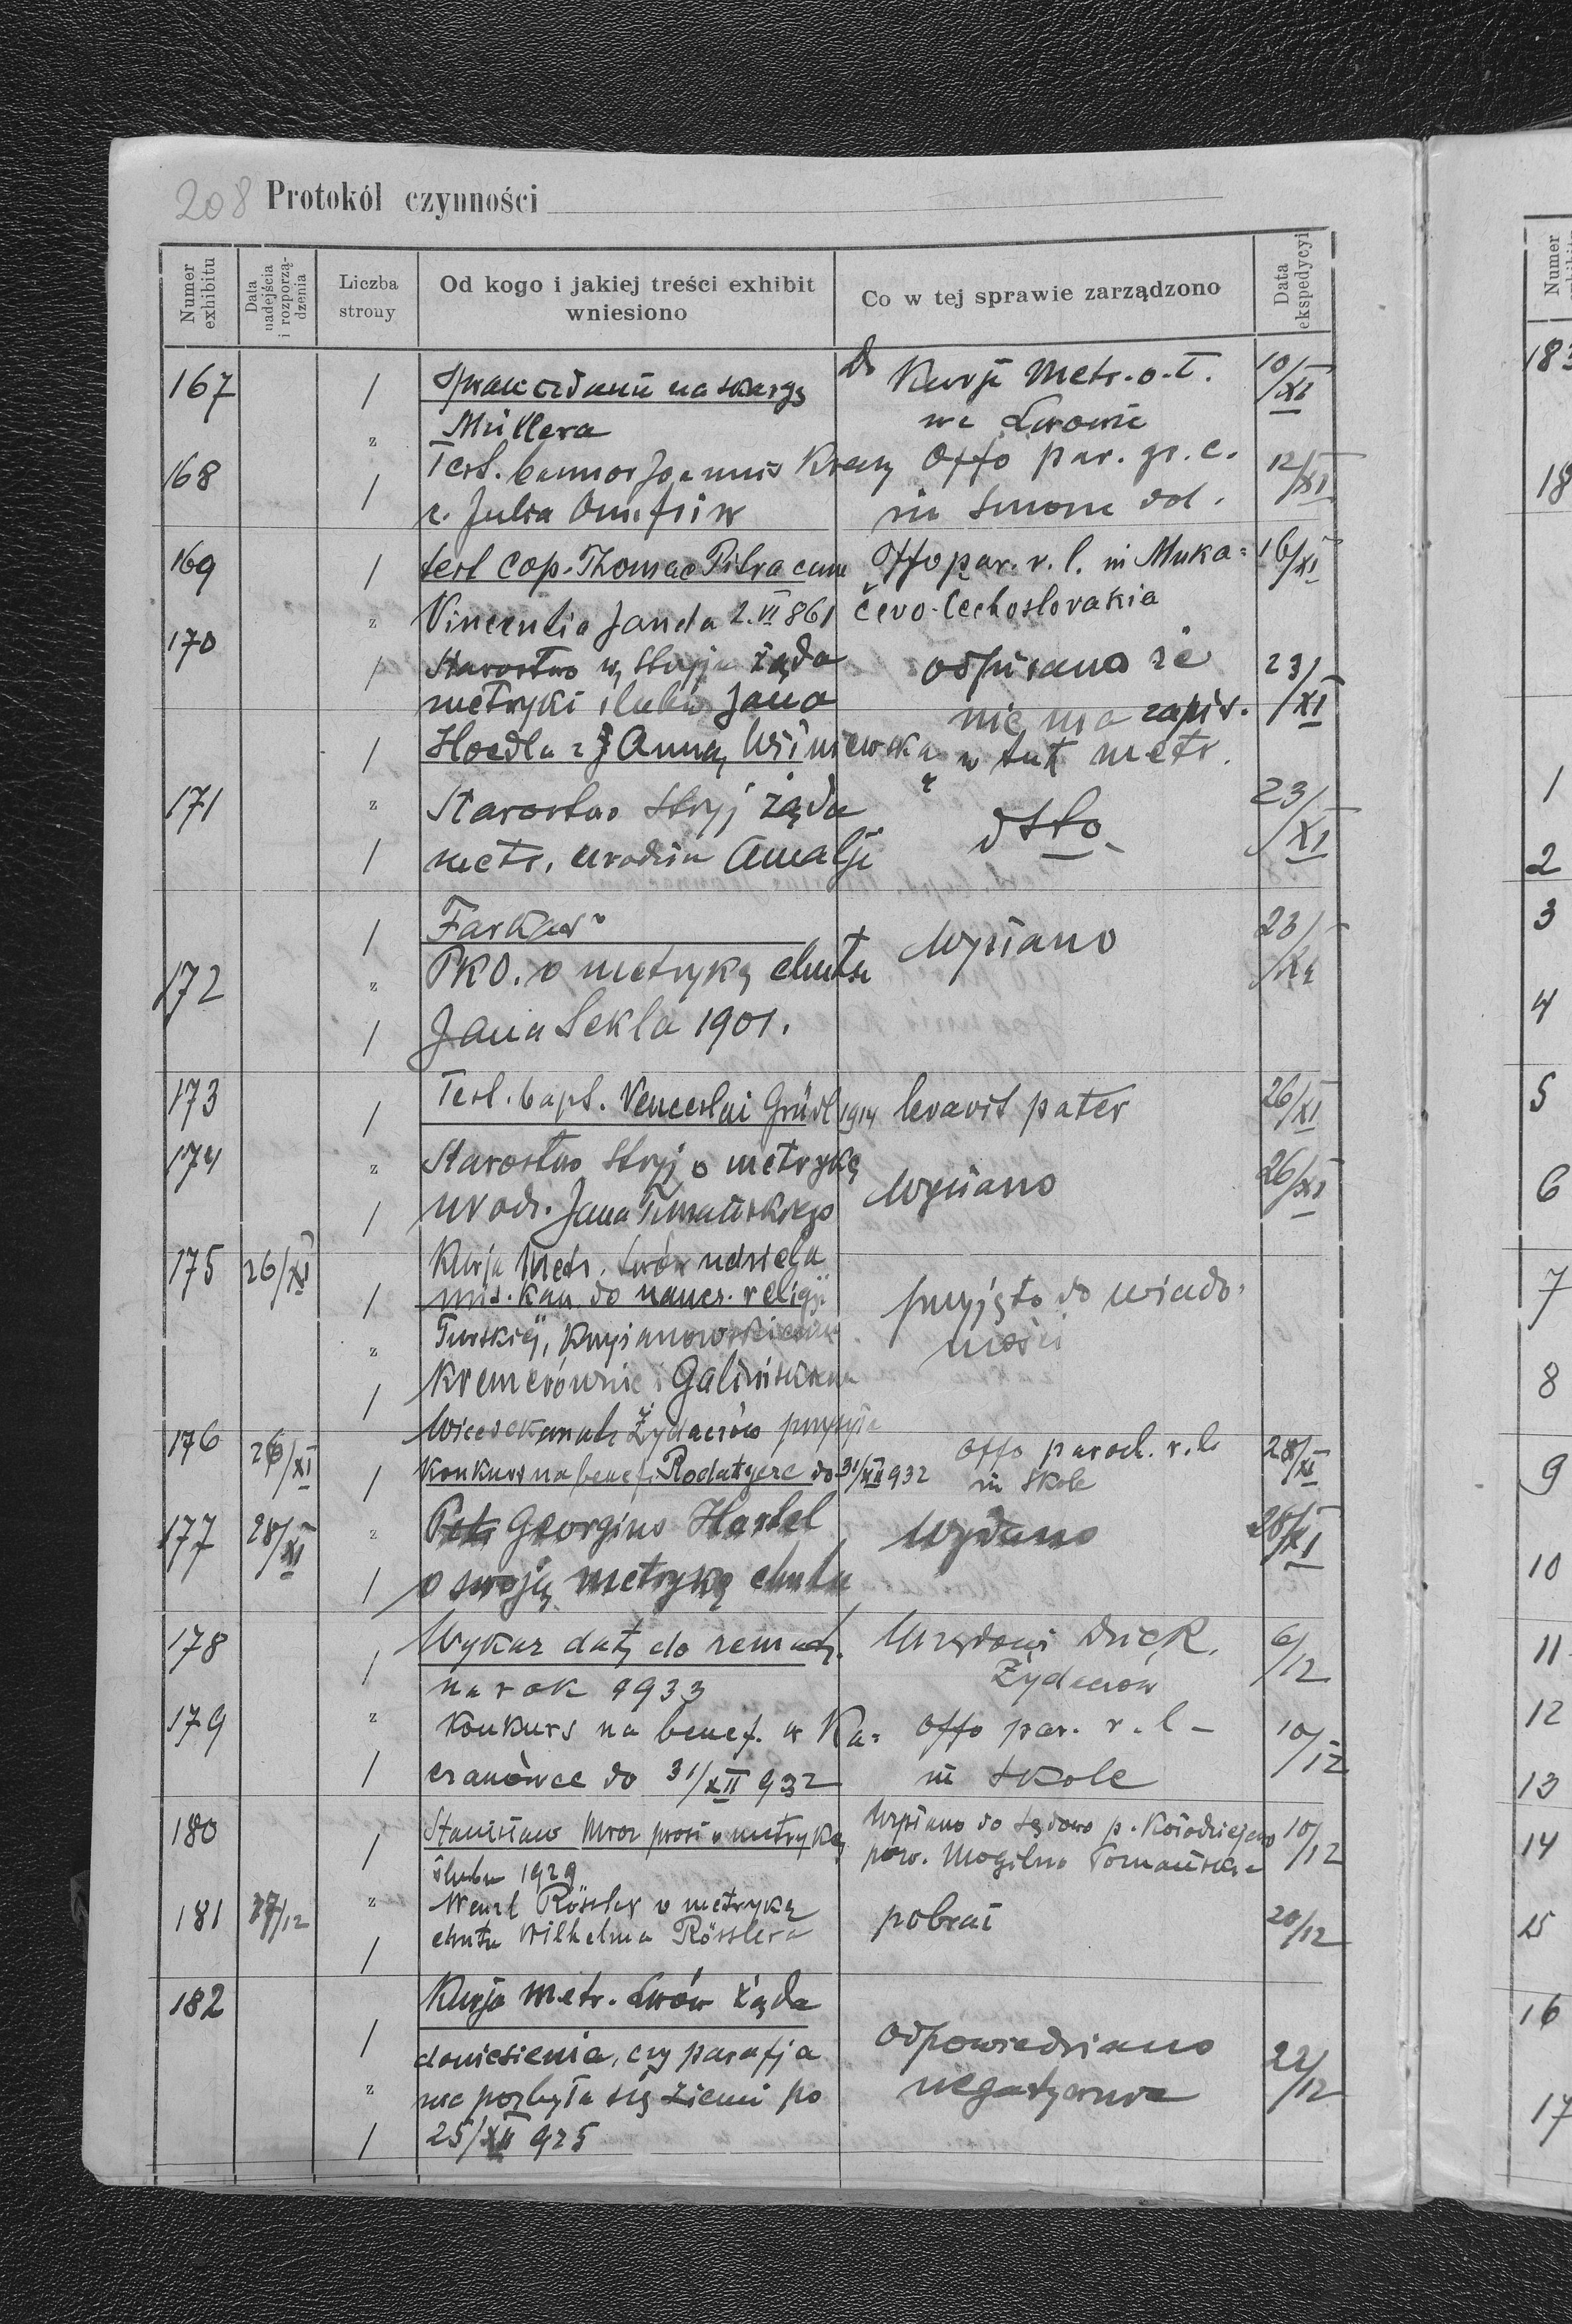 208 Protokół czynności
Numer exhibitu
Data nadejścia i rozporzą-dzenia
Liczba strony
Od kogo i jakiej treści exhibit wniesiono
Co w tej sprawie zarządzono
Data ekspedycyi
167 / na skargę Do Kurji Metr. o. ł. 10/XI
z Müllera we Lwowie
168 / Test. bannor Joannis Offo par. gr. c. 12/XI
c. Julia in dol.
169 / test cop. Thomae Pitra cum Offo par. r. l. in Muka= 16/XI
z Vincentia Janda 2.VI 861 čevo-Čechoslovakia
170 / Starostwo w Stryju żąda odpisano że 23/XI
metryki ślubu Jana nie ma zapis.
/ Hoedla z Anną Wiśniewską w tut metr.
171 z Starostwo Stryj żąda dtto 23/XI
/ metr. urodzin Amalji
/ Farkas
172 z PKO. o metrykę chrztu wpisano 23/XI
/ Jana Sekla 1901.
173 / Test. bapt. Venceslai Gründl 1914 levavit pater 26/XI
174 z Starostwo Stryj o metrykę wpisano 26/XI
/ urodz. Jana
175 26/XI Kurja Metr. Lwów udziela
/ mis. kan. do naucz. religji przyjęto do wiado-
z Turskiej, mości
/ Kremerównie i
176 26/XI Wicedekanat Żydaczów
/ konkurs na benef. Rodatycze do 31/XII 932 Offo paroch. r. l. in Skole 28/XI
177 28/XI z Georgius Hartel wydano 28/XI
/ o swoją metrykę chrztu
178 / Wykaz daty do Urzędowi Dziek. 6/12
na rok 1933 Żydaczów
179 z Konkurs na benef. w Ka= Offo par. r. l - 10/12
/ czanówce do 31/XII 932 in Skole
180 / Stanisław Mroz prosi o metrykę Wpisano do p. Kołodziejewo 10/12
ślubu 1929 pow. Mogilno
181 17/12 z Wenzl Rössler o metrykę pobrał 20/12
/ chrztu Wilhelma Rösslera
182 Kurja metr. Lwów żąda
/ doniesienia, czy parafja odpowiedziano 22/12
z nie pozbyła się ziemi po negatywnie
/ 25/XII 925
Numer
183
18
1
2
3
4
5
6
7
8
9
10
11
12
13
14
15
16
17